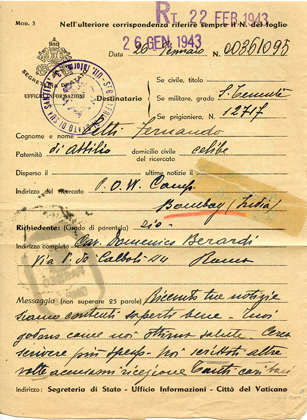 Rt. 22 FEB 1943
MOD. 3
Nell'ulteriore corrispondenza riferire sempre il N. del foglio
26 GEN. 1943
Data 26 Gennaio N. 00351095
UFFICIO INFORMAZIONI
Destinatario
Se civile, titolo -
Se militare, grado S. Tenente
Se prigioniero, N. 12717
Cognome e nome Fernando
Paternità di Attilio domicilio civile del ricercato celibe
Disperso il ultime notizie il
Indirizzo del ricercato P.O.W. Camp.
Bombay (India)
Richiedente: (Grado di parentela) zio -
Indirizzo completo Cav. Domenico Berardi
Via P. So Calboli Roma
Messaggio (non superare 25 parole) Ricevuto tue notizie
siamo contenti saperti bene - Noi
godiamo ottima salute - Cerca
scrivere più spesso - Noi scritto altre
volte
Indirizzo: Segreteria di Stato - Ufficio Informazioni - Città del Vaticano